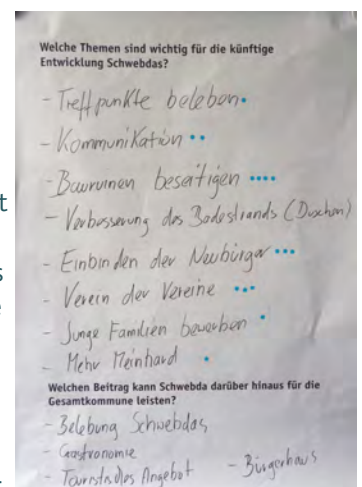 Welche Themen sind wichtig für die künftige
Entwicklung Schwebdas?
- Treffpunkte beleben
- Kommunikation
- Bauruinen beseitigen
- Verbesserung des Badestrands (Duschen)
- Einbinden der Neubürger
- Verein der Vereine
- Junge Familien bewerben
- Mehr Meinhard
Welchen Beitrag kann Schwebda darüber hinaus für die
Gesamtkommune leisten?
- Belebung Schwebdas
- Gastronomie
- Touristisches Angebot - Bürgerhaus